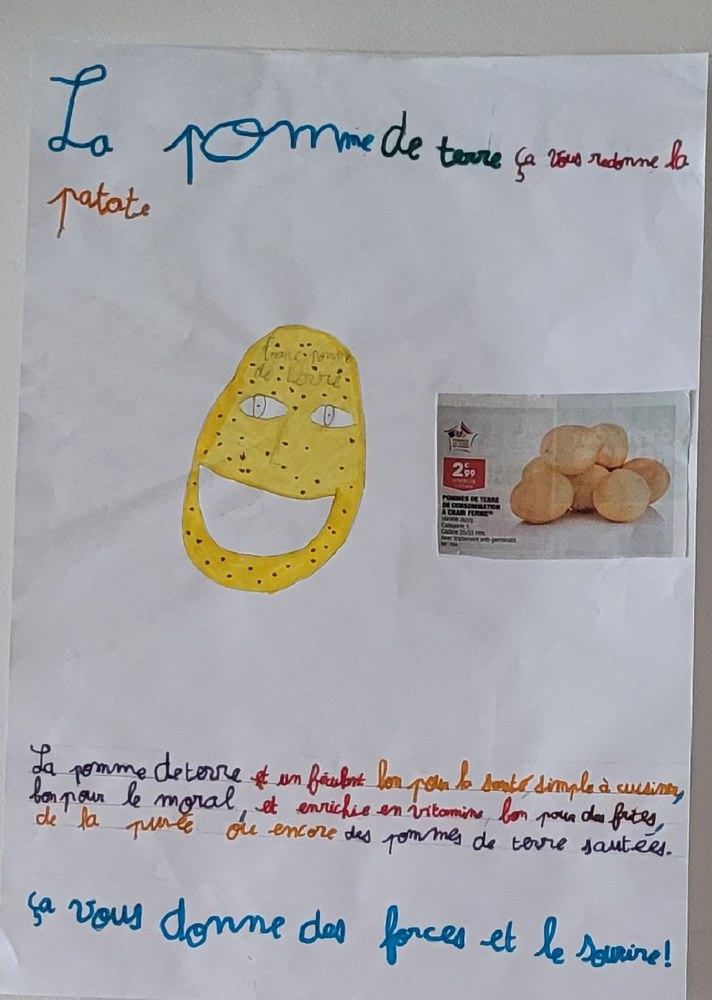 La pomme de terre ça vous redonne la
patate
pomme
de terre
2€99
POMMES DE TERRE
DE CONSOMMATION
À CHAIR FERME
Catégorie 1.
Calibre 35/55 mm.
Avec traitement anti-germinatif.
La pomme de terre et un féculent bon pour la santé, simple à cuisiner,
bon pour le moral, et enrichie en vitamine, bon pour des frites,
de la purée où encore des pommes de terre sautées.
ça vous donne des forces et le sourire!